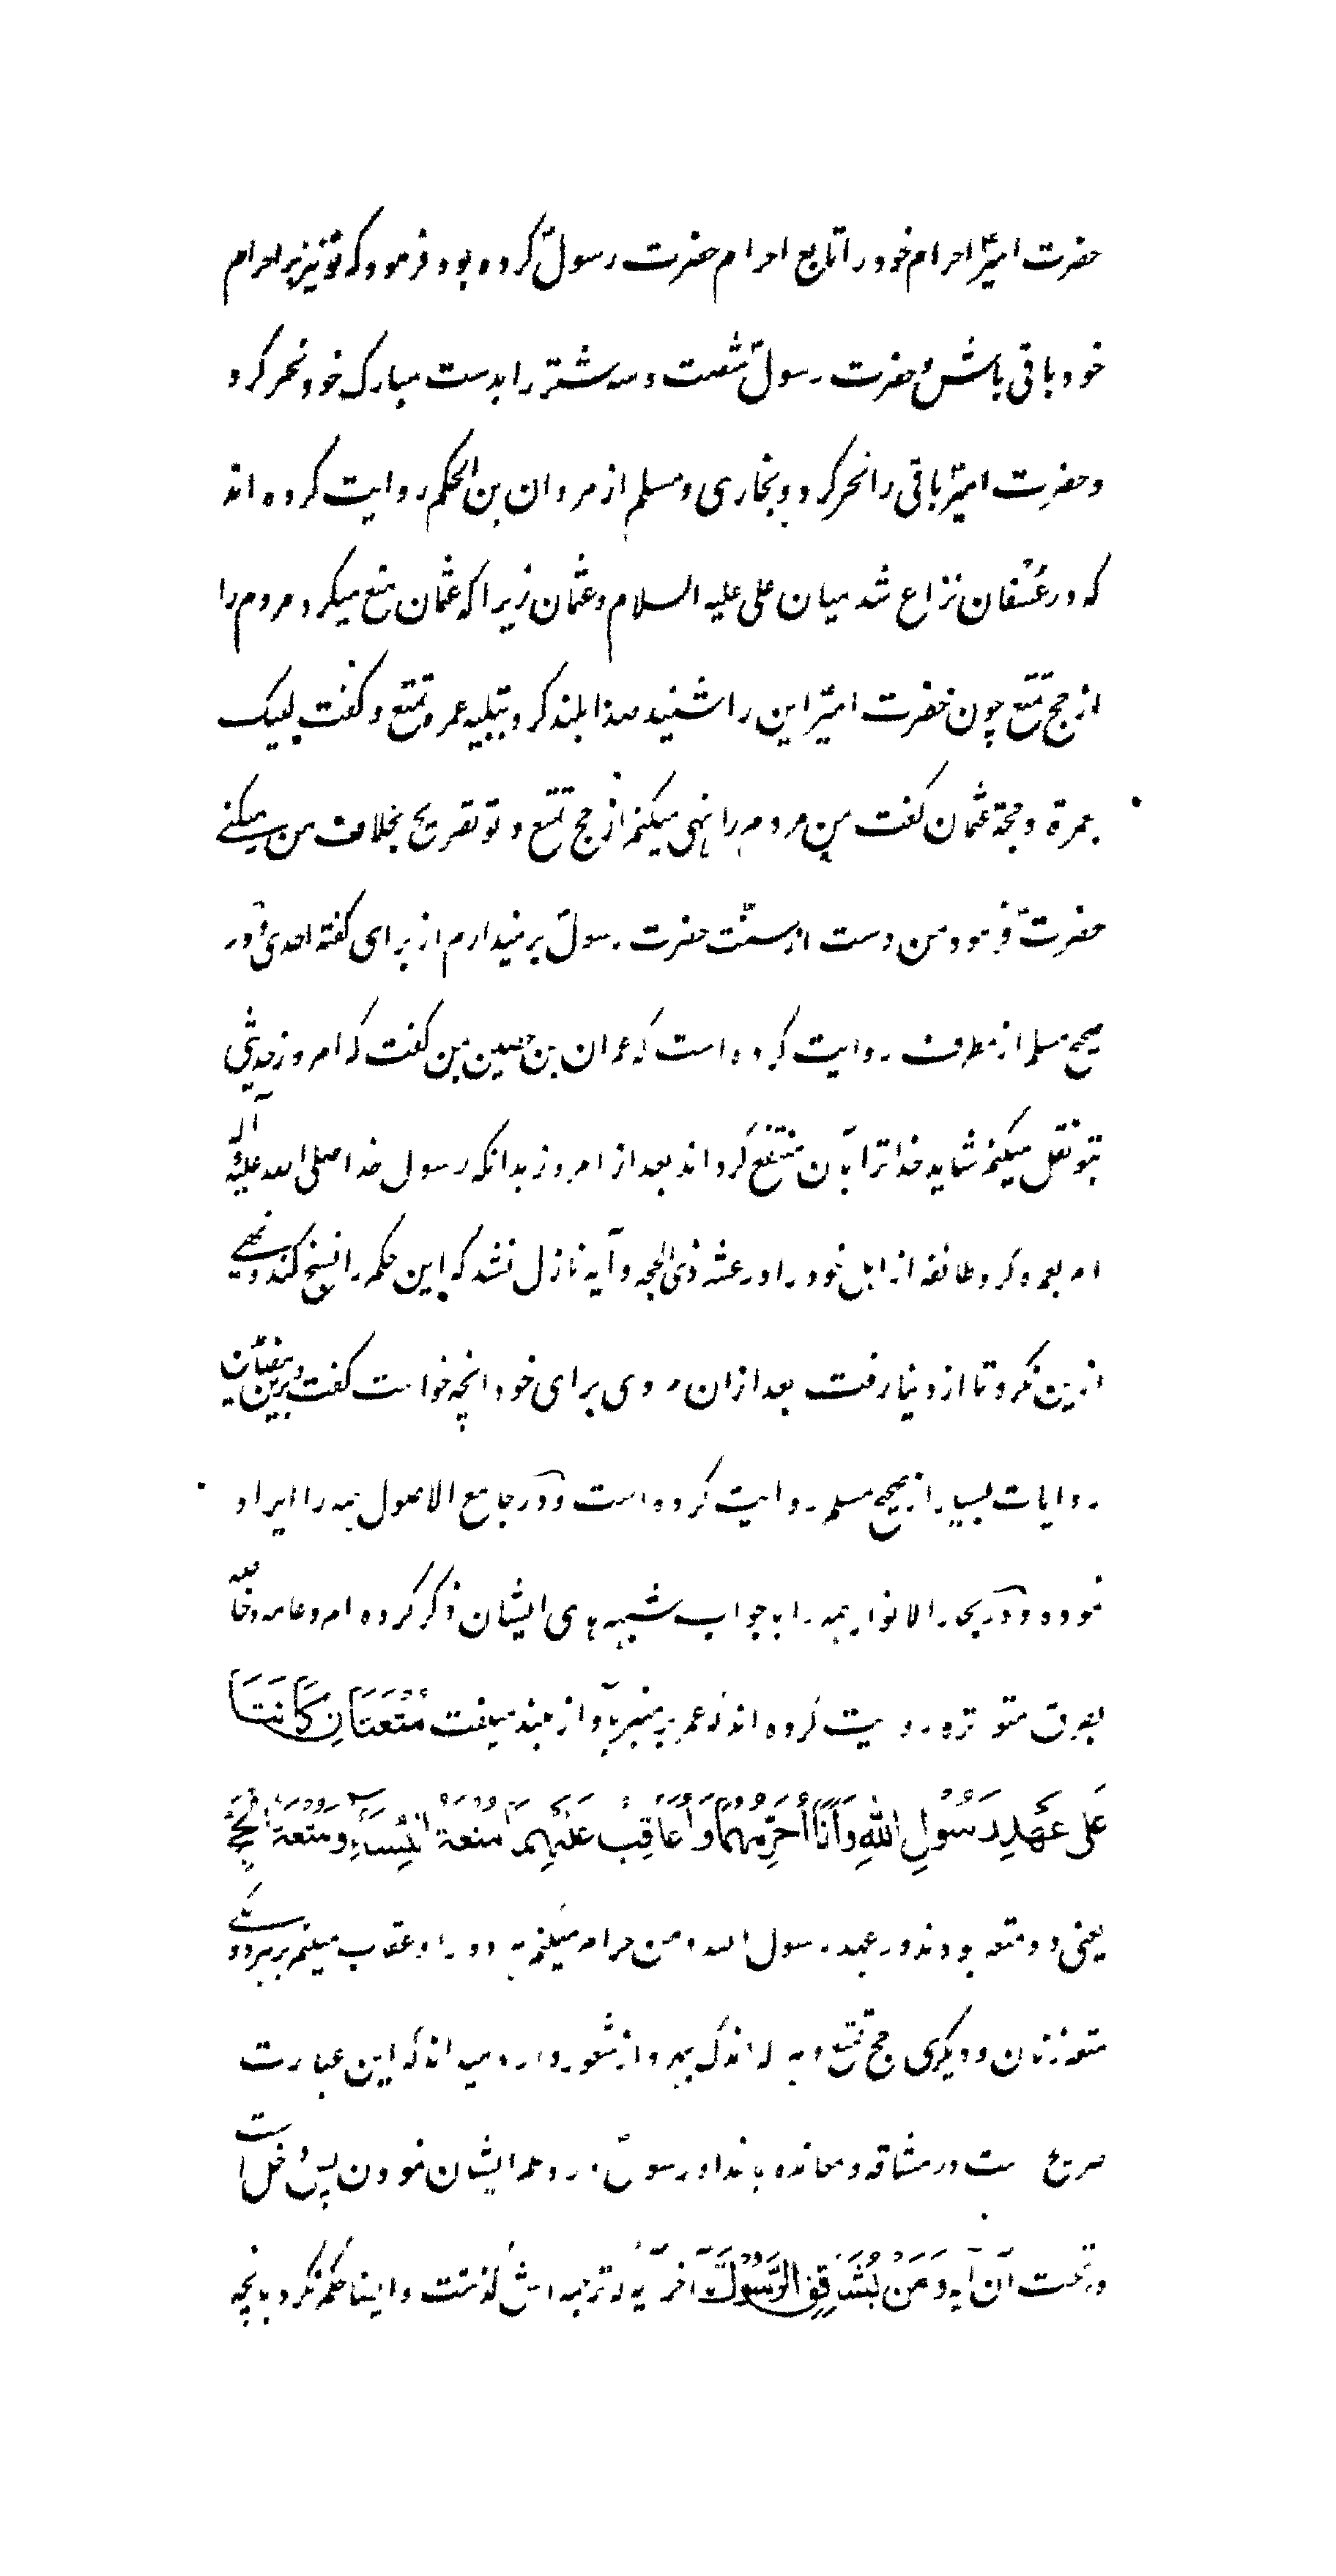 حضرت امیرؑ احرام خود را تابع احرام حضرت رسولؐ کرده بود فرمود که تو نیز بر احرام
خود باقی باش و حضرت رسولؐ شصت و سه شتر را بدست مبارک خود نحر کرد
و حضرت امیرؑ باقی را نحر کرد و بخاری و مسلم از مروان بن الحکم روایت کرده اند
که در عسفان نزاع شد میان علی علیه السلام و عثمان زیرا که عثمان منع میکرد مردم را
از حج تمتع چون حضرت امیرؑ این را شنید صدا بلند کرد بتلبیه عمره تمتع و گفت لبیک
بعمرة و حجة عثمان گفت من مردم را نهی میکنم از حج تمتع و تو تصریح بخلاف من میکنے
حضرتؑ فرمود من دست از سنت حضرت رسولؐ برنمیدارم از برای گفته احدی و در
صحیح مسلم از مطرف روایت کرده است که عمران بن حصین بمن گفت که امروز حدیثی
بتو نقل میکنم شاید خدا ترا بآن منتفع گرداند بعد از امروز بدانکه رسول خدا صلی الله علیه و آله
امر بعمره کرد طائفه از اهل خود را در عشر ذی الحجه و آیه نازل نشد که این حکم را نسخ کند و نهے
ازین نکرد تا از دنیا رفت بعد ازان مردی برای خود انچه خواست گفت و برین مضمون
روایات بسیار از صحیح مسلم روایت کرده است و در جامع الاصول همه را ایراد
نموده و در بحار الانوار همه را با جواب شبهه های ایشان ذکر کرده ام و عامه و خاصه
بطرق متواتره روایت کرده اند که عمر بر منبر بآواز بلند میگفت مُتْعَتَانِ كَانَتَا
عَلَى عَهْدِ رَسُوْلِ اللهِ وَاَنَا اُحَرِّمُهُمَا وَ اُعَاقِبُ عَلَيْهِمَا مُتْعَةُ النِّسَاءِ وَ مُتْعَةُ الْحَجِّ
یعنی دو متعه بودند در عهد رسول الله و من حرام میکنم هر دو را و عقاب میکنم بر هر دو یکے
متعه زنان و دیگری حج تمتع و هر که اندک بهره از شعور دارد میداند که این عبارت
صریح است در مشاقه و معانده با خدا و رسولؐ و رد حکم ایشان نمودن پس داخل است
در تحت آن آیه وَ مَنْ يُّشَاقِقِ الرَّسُوْلَ تا آخر آیه که ترجمه اش گذشت و ایضا حکم نکرد بانچه